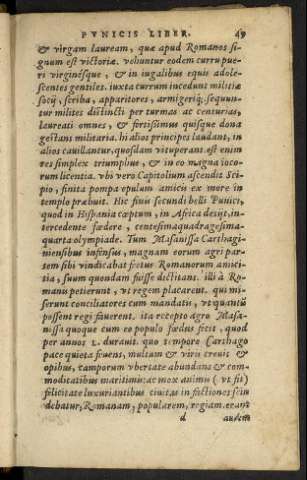 PVNICIS LIBER. 49
& virgam lauream, quæ apud Romanos si-
gnum est victoriæ. vehuntur eodem curru pue-
ri virginésque, & in iugalibus equis adole-
scentes gentiles. iuxta currum incedunt militiæ
socij, scribæ, apparitores, armigeriq;. sequun-
tur milites distincti per turmas ac centurias,
laureati omnes, & fortissimus quisque dona
gestans militaria. hi alios principes laudant, in
alios cauillantur, quosdam vituperant. est enim
res simplex triumphus, & in eo magna ioco-
rum licentia. vbi vero Capitolium ascendit Sci-
pio, finita pompa epulum amicis ex more in
templo præbuit. Hic finis secundi belli Punici,
quod in Hispania cœptum, in Africa desijt, in-
tercedente fœdere, centesimaquadragesima-
quarta olympiade. Tum Masanissa Carthagi-
niensibus infensus, magnam eorum agri par-
tem sibi vindicabat fretus Romanorum amici-
tia, suum quondam fuisse dictitans. illi à Ro-
manis petierunt, vt regem placarent. qui mi-
serunt conciliatores cum mandatis, vt quantū
possent regi fauerent. ita recepto agro Masa-
nissa quoque cum eo populo fœdus fecit, quod
per annos L. durauit. quo tempore Carthago
pace quieta fruens, multum & viris creuit &
opibus, camporum vbertate abundans & com-
moditatibus maritimis: ac mox animis (vt fit)
felicitate luxuriantibus ciuitas in factiones scin
debatur, Romanam, popularem, regiam. erant
d autem